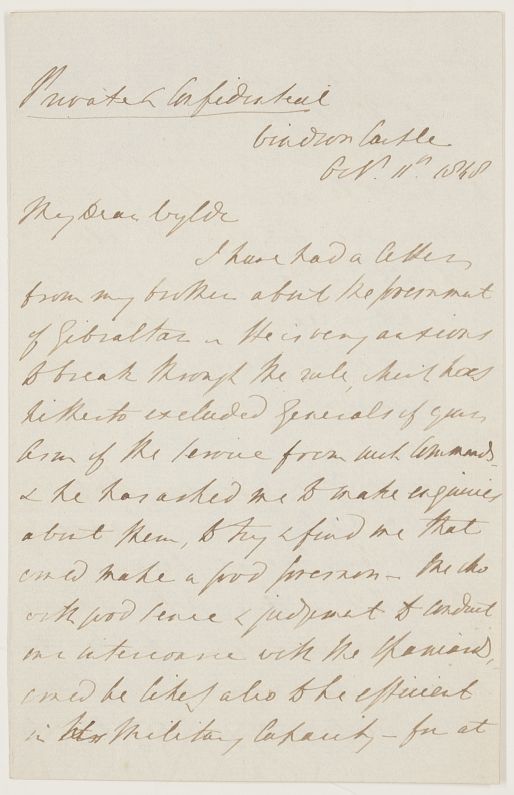 Private & Confidential
Windsor Castle
Oct. 11th 1848
My Dear Wylde
I have had a letter
from my brother about the Government
of Gibraltar – He is very anxious
to break through the rule, which has
hitherto excluded Generals of your
Arm of the Service from such Commands –
& he has asked me to make enquiries
about them, to try & find one that
could make a good Governor – One who
with good sense & judgement to conduct
our intercourse with the Spaniards,
could be likely also to be efficient
in his Military Capacity – for at